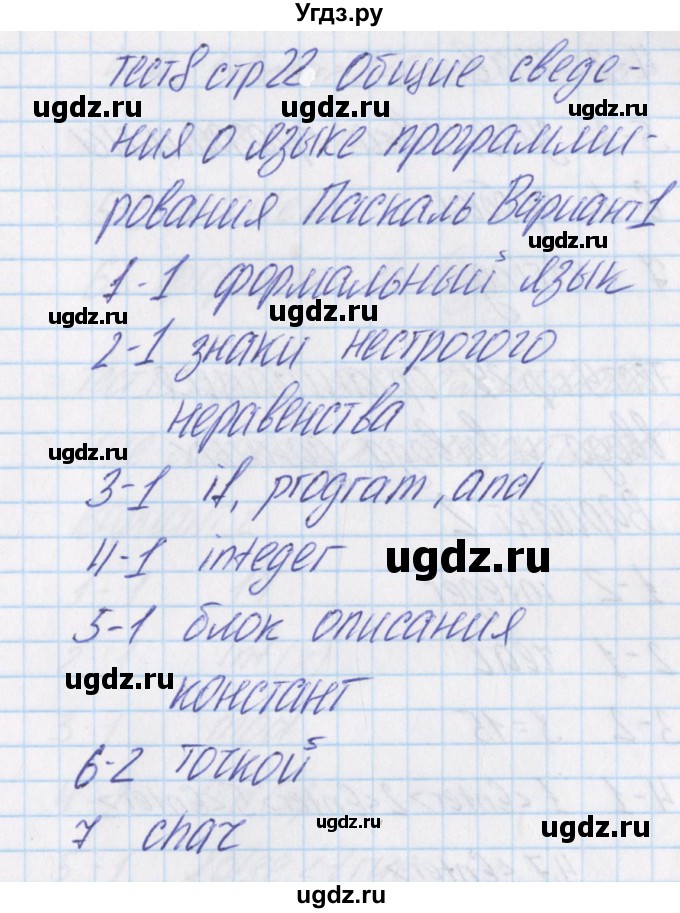 Угдз.ру
тест8 стр22 Общие сведе-
ugdz.ru ugdz.ru ugdz.ru
ния о языке программи-
рования Паскаль Вариант1
ugdz.ru
1-1 формальный язык
ugdz.ru ugdz.ru
2-1 знаки нестрогого
неравенства
ugdz.ru
3-1 if, program, and
4-1 integer ugdz.ru
5-1 блок описания
ugdz.ru
констант
6-2 точкой
7 char ugdz.ru ugdz.ru
ugdz.ru